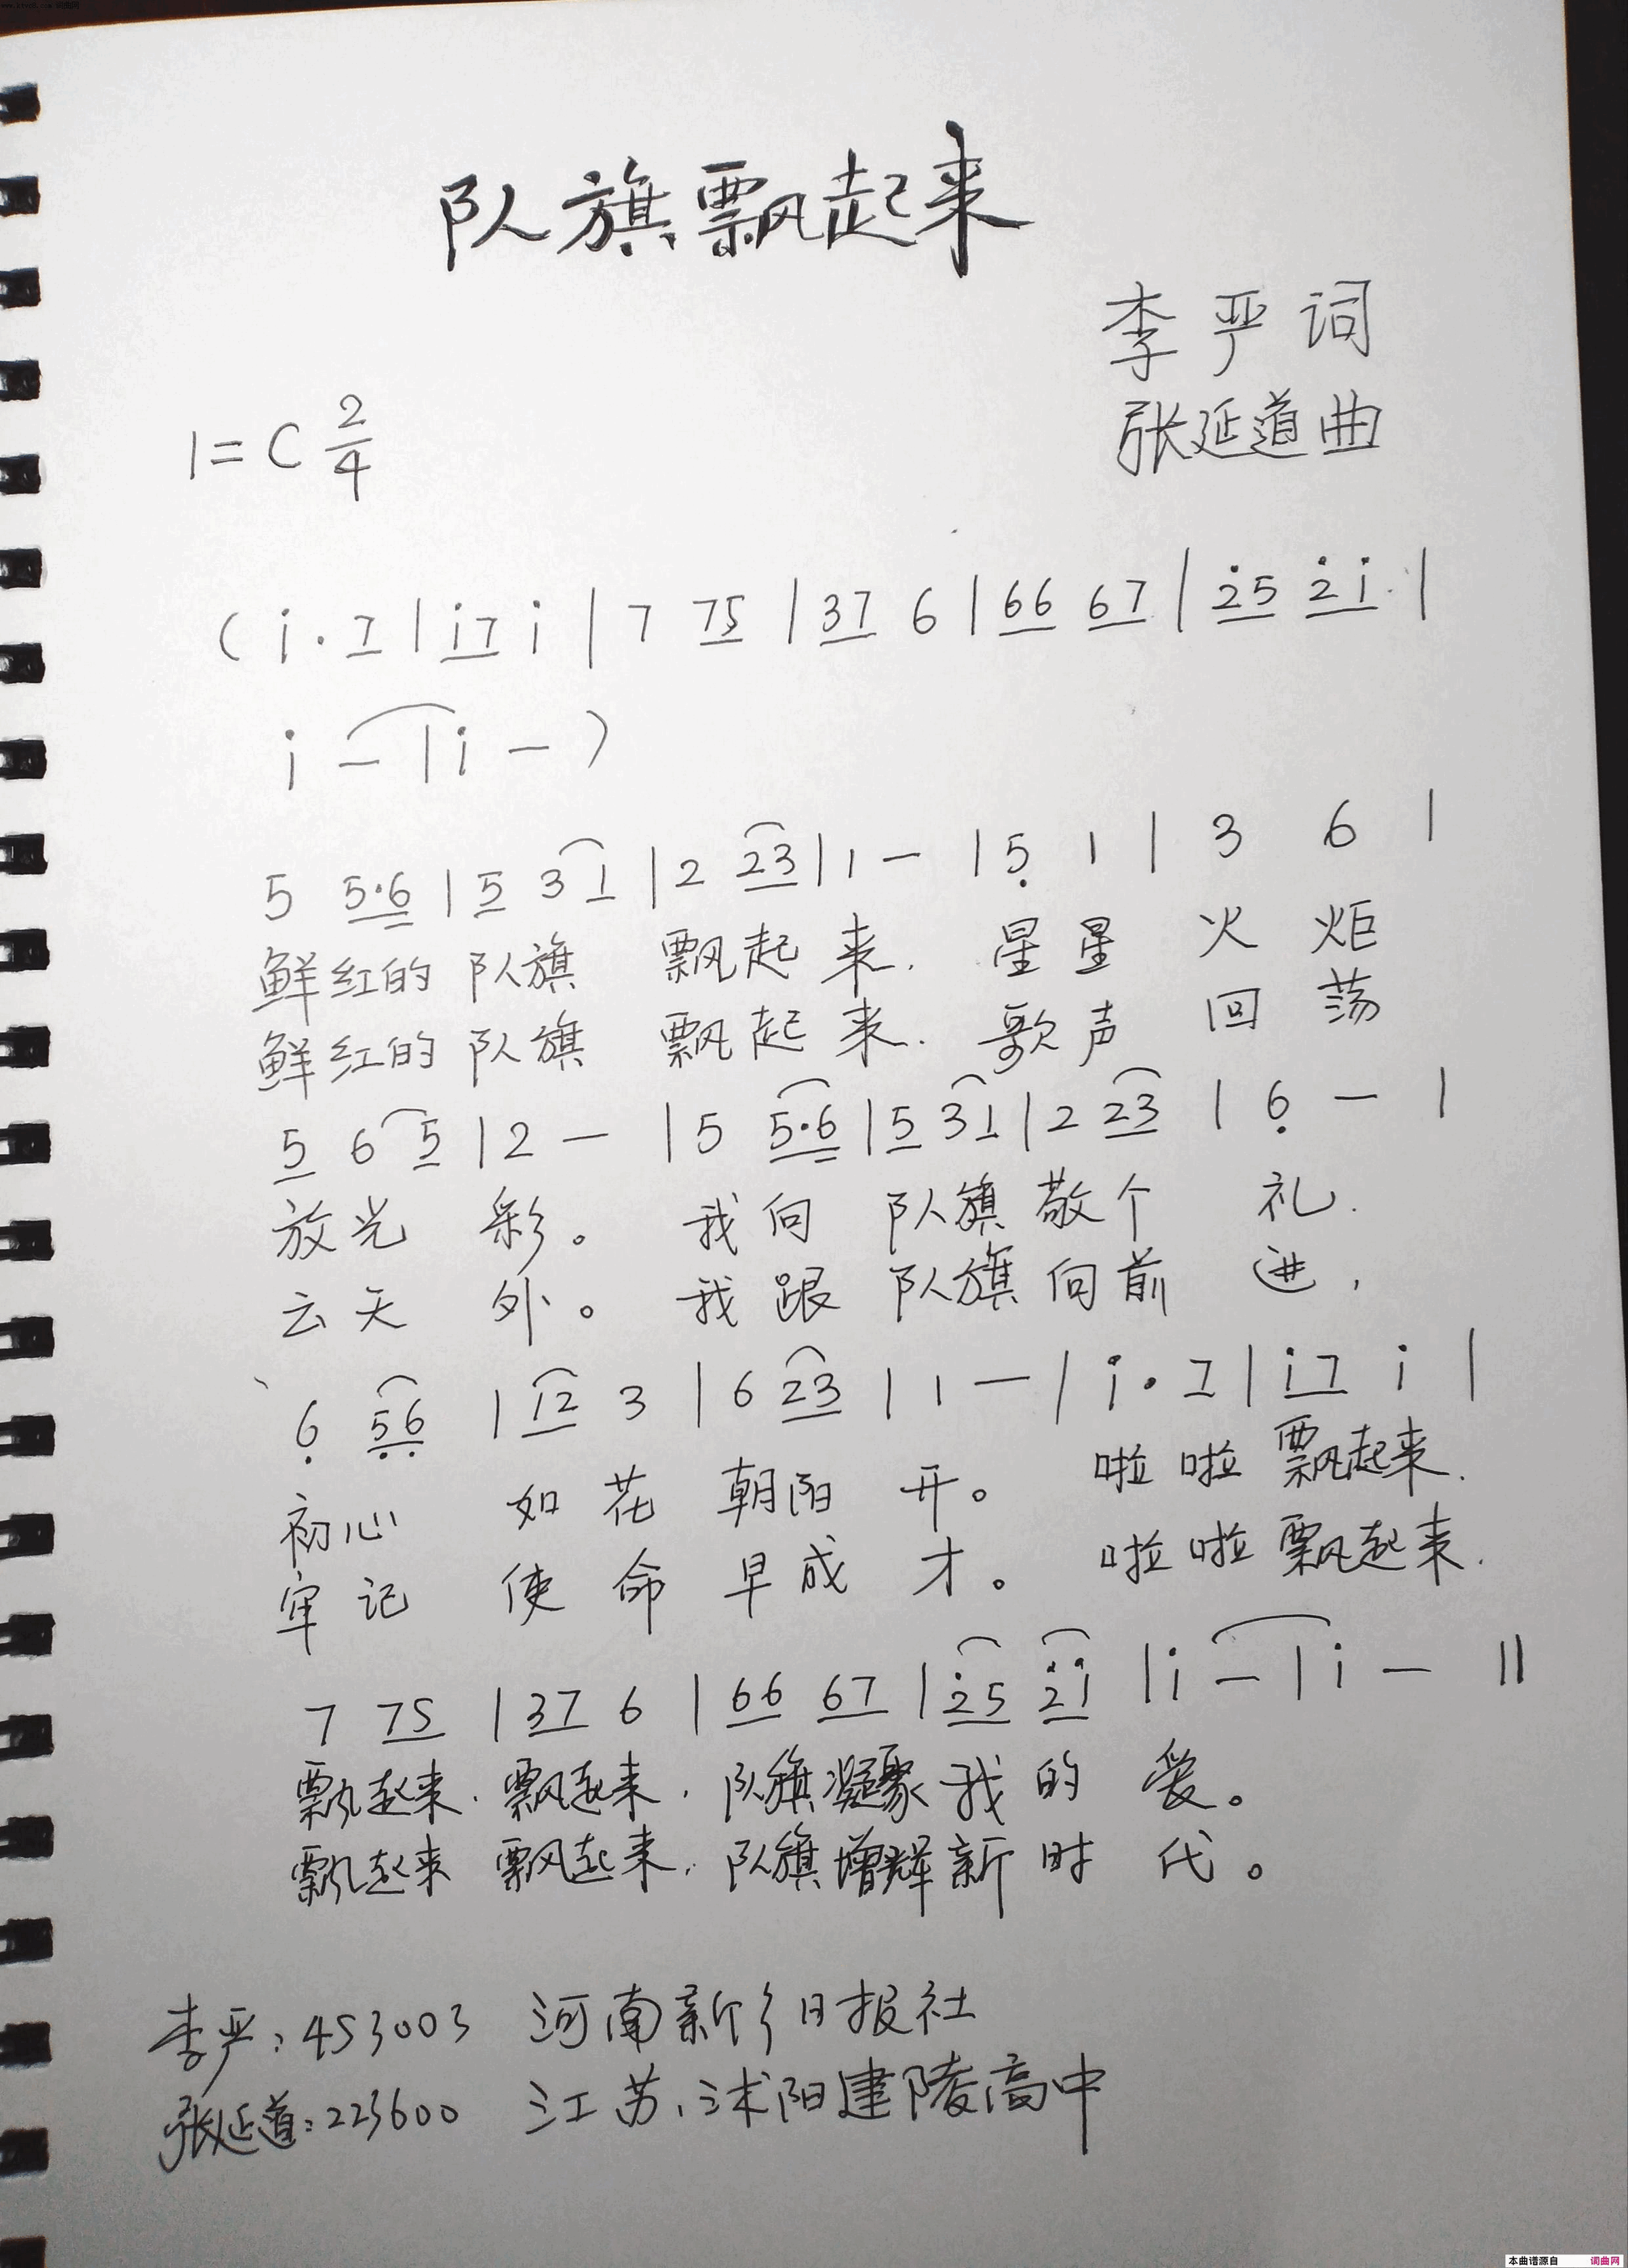 队旗飘起来
李严词
张延道曲
1=C 2/4
(i̇·7|i̇7 i̇|7 75|37 6|66 67|2̇5 2̇i̇|
i̇ -|i̇ -)
5 5·6|5 3 1|2 23|1 -|5̣ 1|3 6|
鲜红的队旗 飘起来. 星星 火 炬
鲜红的队旗 飘起来. 歌声 回 荡
5 6 5|2 -|5 5·6|5 3 1|2 23|6̣ -|
放光 彩。 我向 队旗敬个 礼.
云天 外。 我跟 队旗向前 进,
6̣ 5̣6̣|12 3|6 23|1 -|i̇·7|i̇7 i̇|
初心 如花 朝阳 开。 啦啦飘起来.
牢记 使命 早成 才。 啦啦飘起来.
7 75|37 6|66 67|2̇5 2̇i̇|i̇ -|i̇ -‖
飘起来.飘起来.队旗凝聚我的 爱。
飘起来 飘起来.队旗增辉新时 代。
李严:453003 河南新乡日报社
张延道:223600 江苏、沭阳建陵高中
本曲谱源自 词曲网